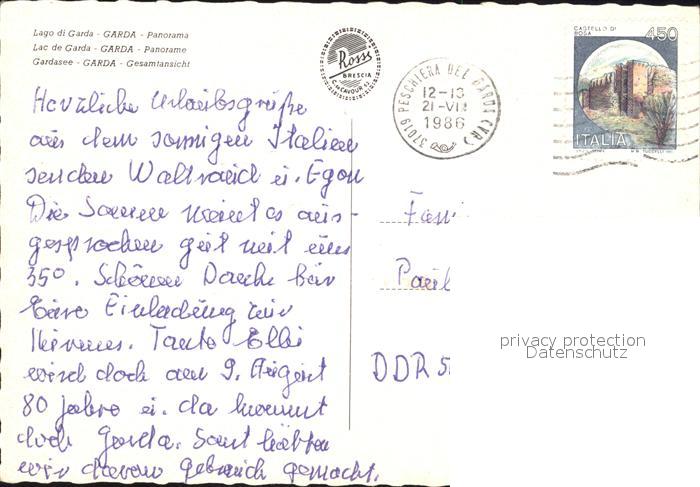 Lago di Garda - GARDA - Panorama
Lac de Garda - GARDA - Panorame
Gardasee - GARDA - Gesamtansicht
Ross
BRESCIA
C.so CAVOUR 42
37019 PESCHIERA DEL GARDA (VR)
12-13
21-VII
1986
CASTELLO DI ROSA
450
ITALIA
Herzliche Urlaubsgrüße
aus dem sonnigen Italien
senden Waltraud u. Egon
Die Sonne meint es aus-
gesprochen gut mit uns
35°. Schönen Dank für
Eure Einladung zur
Kirmes. Tante Elli
wird doch am 9. August
80 Jahre u. da kommt
doch Gerda. Sonst hätten
wir davon Gebrauch gemacht.
Fam
Paul
DDR 5
privacy protection
Datenschutz